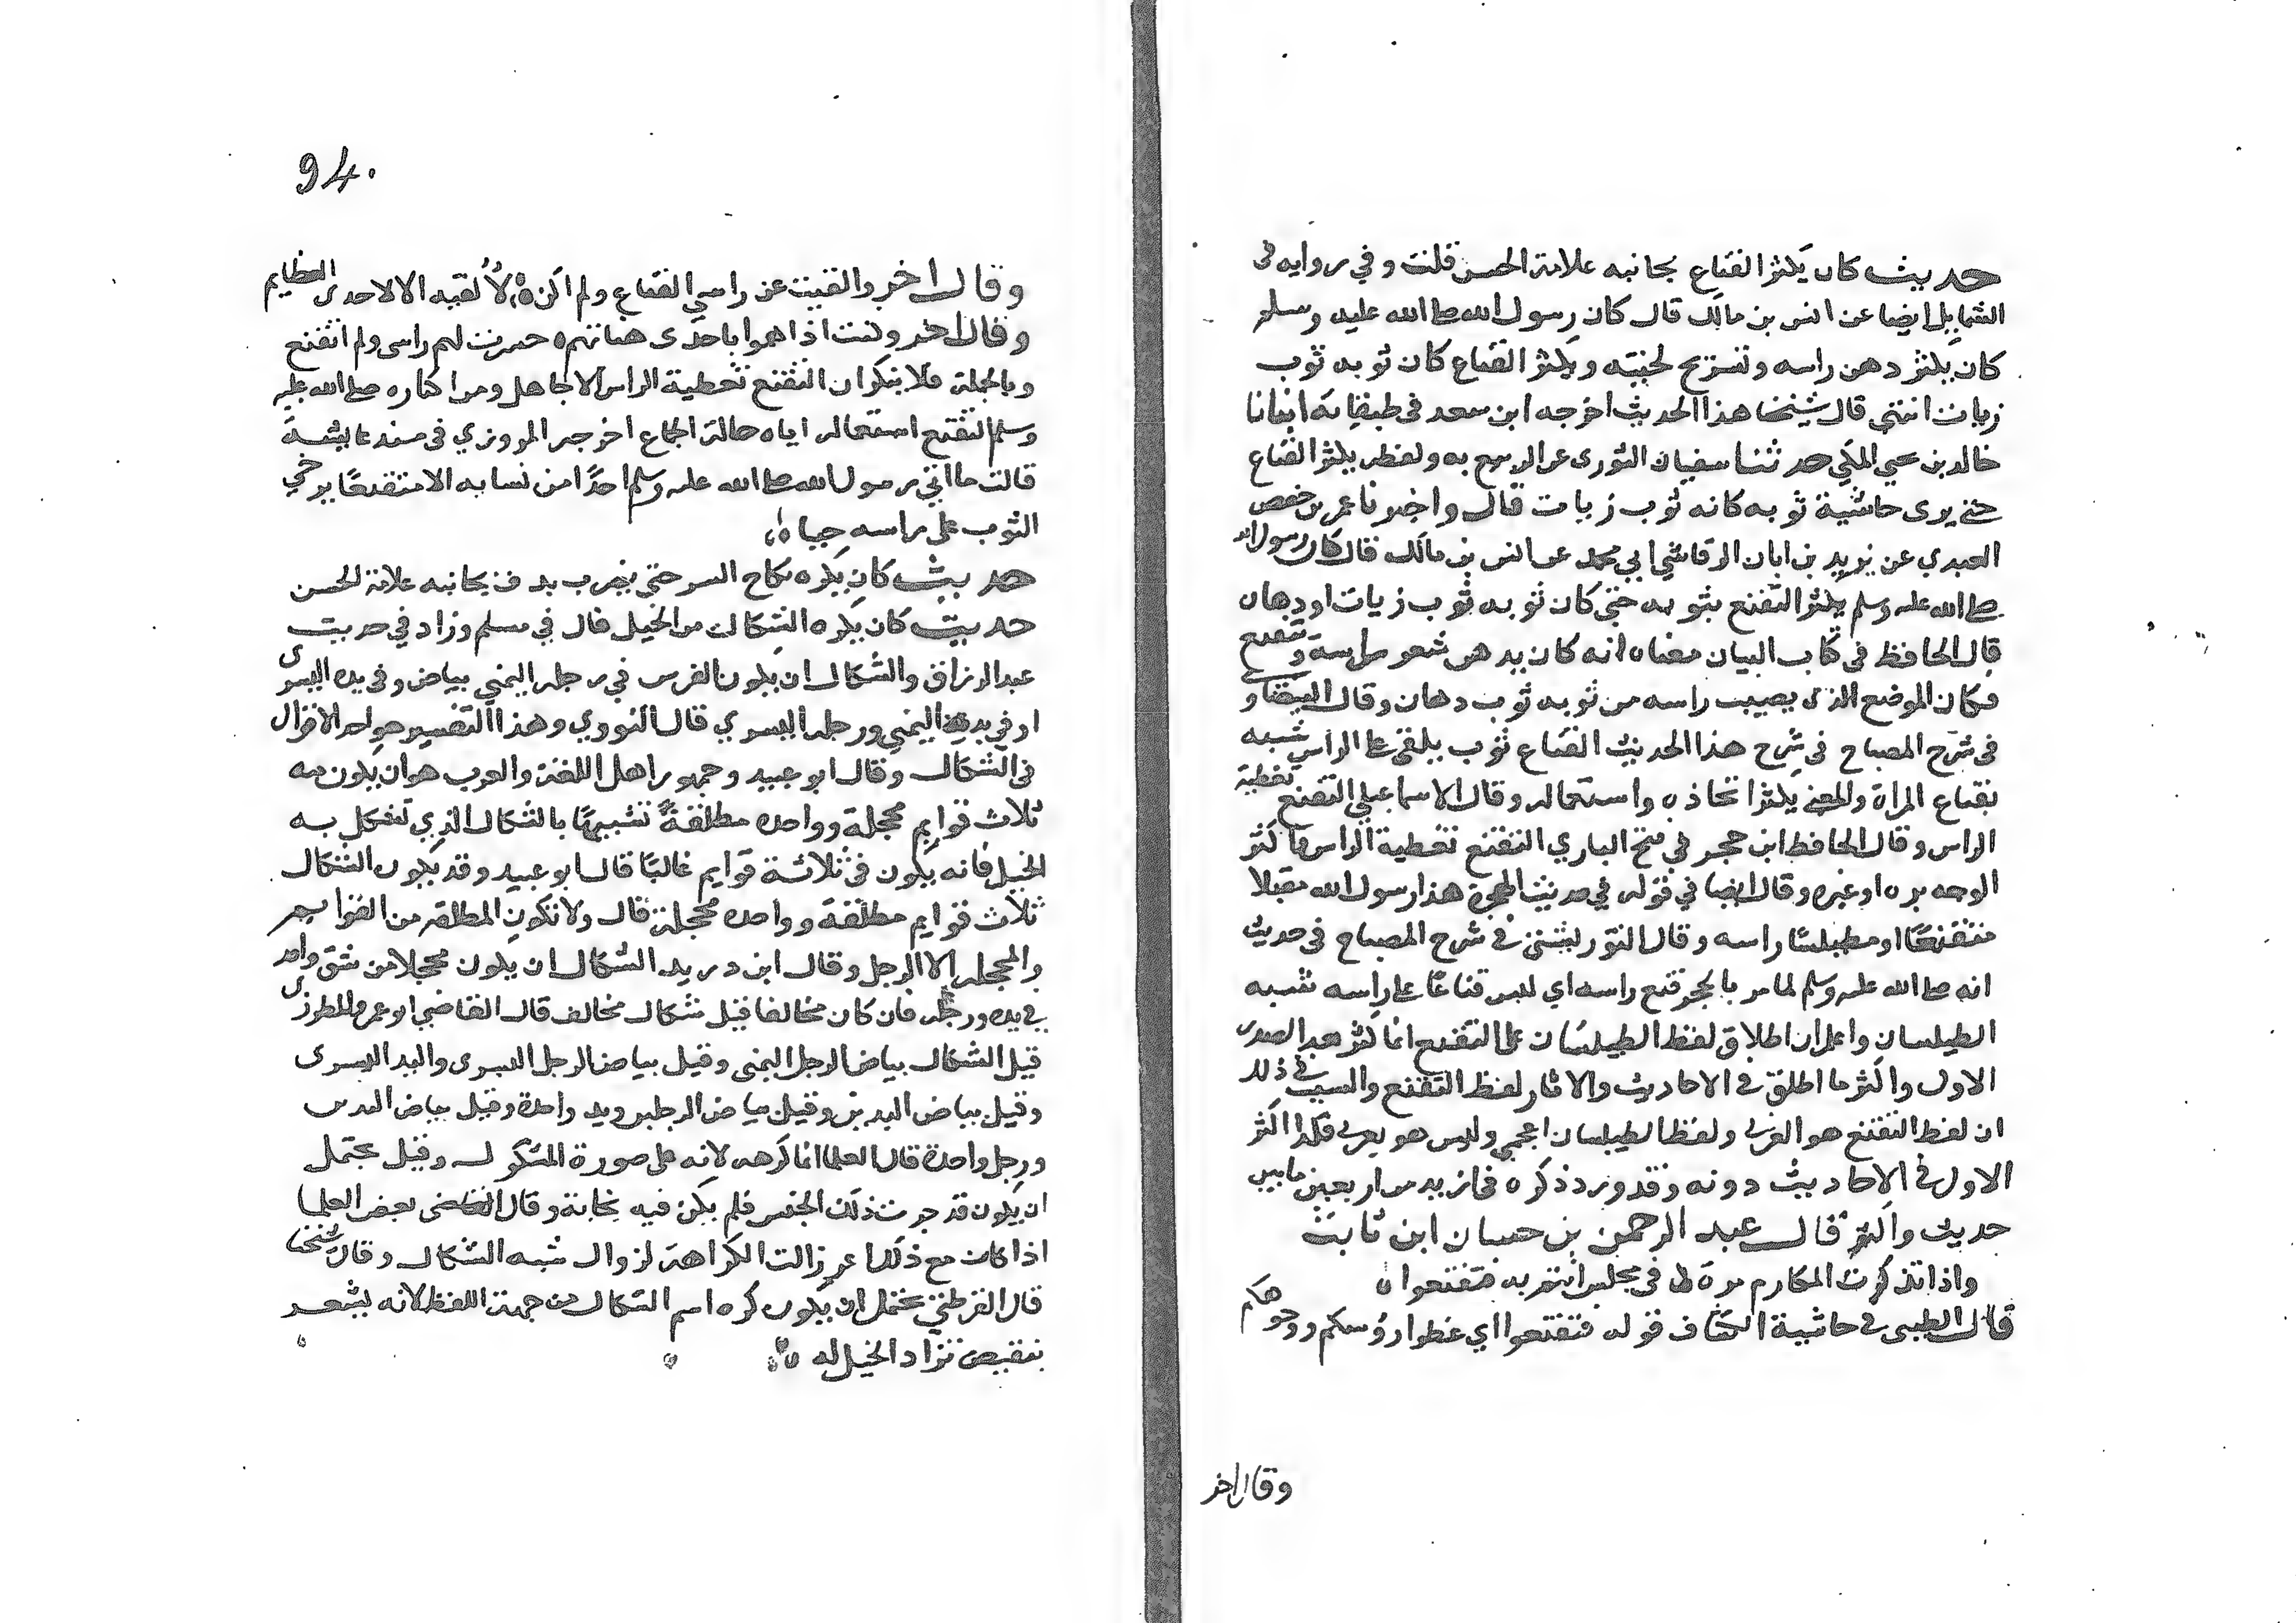 حديث كان يكثر القناع بجانبه علامة الحسن قلت وفي روايه في
الشمايل ايضا عن انس بن مالك قال كان رسول الله صلى الله عليه وسلم
كان يكثر دهن راسه وتسريح لحيته ويكثر القناع كان ثوبه ثوب
زيات انتهى قال شيخنا هذا الحديث اخرجه ابن سعد في طبقاته انبانا
خالد بن المكي حدثنا سفيان الثوري عن الربيع به ولفظه يكثر القناع
حتى يرى حاشية ثوبه كانه ثوب زيات قال واخبرنا عمر بن حفص
العبدي عن يزيد بن ابان الرقاشي ابي محمد عن انس بن مالك قال كان رسول الله
صلى الله عليه وسلم يكثر التقنع بثوبه حتى كان ثوبه ثوب زيات او دهان
قال الحافظ في كتاب البيان معناه انه كان يدهن شعر راسه ويتقنع
فكان الموضع الذي يصيب راسه من ثوبه ثوب دهان وقال
في شرح المصباح في شرح هذا الحديث القناع ثوب يلقى على الراس شبه
بقناع المراة والمعنى يكثر اتخاذه واستعماله وقال الاسماعيلي التقنع تغطية
الراس وقال الحافظ ابن حجر في فتح الباري التقنع تغطية الراس واكثر
الوجه برداء او غيره وقال ايضا في قوله في حديث الهجرة هذا رسول الله مقبلا
متقنعا او مطيلسا راسه وقال التوربشتي في شرح المصباح في حديث
انه صلى الله عليه وسلم لما مر بالحجر قنع راسه اي لبس قناعا على راسه شبه
الطيلسان واعلم ان اطلاق لفظ الطيلسان على التقنع انما كثر بعد الصدر
الاول واكثر ما اطلق في الاحاديث والاثار لفظ التقنع والسبب في ذلك
ان لفظ التقنع هو العربي ولفظ الطيلسان اعجمي وليس هو بعربي فلذا اكثر
الاول في الاحاديث دونه وقد ورد ذكره في ازيد من اربعين ما بين
حديث واثر قال عبد الرحمن بن حسان ابن ثابت
واذا تذكرت المكارم مرة في مجلس انتم به فتقنعوا
قال الطيبي في حاشية الكشاف قوله فتقنعوا اي غطوا روسكم ووجوهكم
وقال اخر
94.
وقال اخر والقيت عن راسي القناع ولم اكن لالقيه الا لاحدى العظايم
وقال اخر وكنت اذا هموا باحدى هناتهم حسرت لهم راسى ولم اتقنع
وبالجملة فلا ينكر ان التقنع تغطية الراس الا جاهل ومن اكثاره صلى الله عليه
وسلم التقنع استعماله اياه حالة الجماع اخرجه المروزي في مسند عايشة
قالت ما اتى رسول الله صلى الله عليه وسلم احدا من نسايه الا متقنعا يرخي
الثوب على راسه حياء
حديث كان يكره نكاح السر حتى يضرب بدف بجانبه علامة الحسن
حديث كان يكره الشكال من الخيل قال في مسلم وزاد في حديث
عبد الرزاق والشكال ان يكون الفرس في رجله اليمنى بياض وفي يده اليسرى
او في يده اليمنى ورجله اليسرى قال النووي وهذا التفسير هو احد الاقوال
في الشكال وقال ابو عبيد وجمهور اهل اللغة والعرب هو ان يكون منه
ثلاث قوايم محجلة وواحده مطلقة تشبيها بالشكال الذي تشكل به
الخيل فانه يكون في ثلاثة قوايم غالبا قال ابو عبيد وقد يكون الشكال
ثلاث قوايم مطلقة وواحده محجلة قال ولا تكون المطلقة من القوايم
والمحجلة الا الرجل وقال ابن دريد الشكال ان يكون محجلا من شق واحد
في يده ورجله فان كان مخالفا قيل شكال مخالف قال القاضي ابو عمر والمطرزى
قيل الشكال بياض الرجل اليمنى وقيل بياض الرجل اليسرى واليد اليسرى
وقيل بياض اليدين وقيل بياض الرجلين ويد واحدة وقيل بياض اليدين
ورجل واحدة قال العلما انما كرهه لانه على صورة المشكول وقيل يحتمل
ان يكون قد جرب ذلك الجنس فلم يكن فيه نجابة وقال بعض العلما
اذا كان مع ذلك اغر زالت الكراهة لزوال شبه الشكال وقال شيخنا
قال القرطبي يحتمل ان يكون كره اسم الشكال من جهة اللفظ لانه يشعر
بنقيض تراد الخيل له